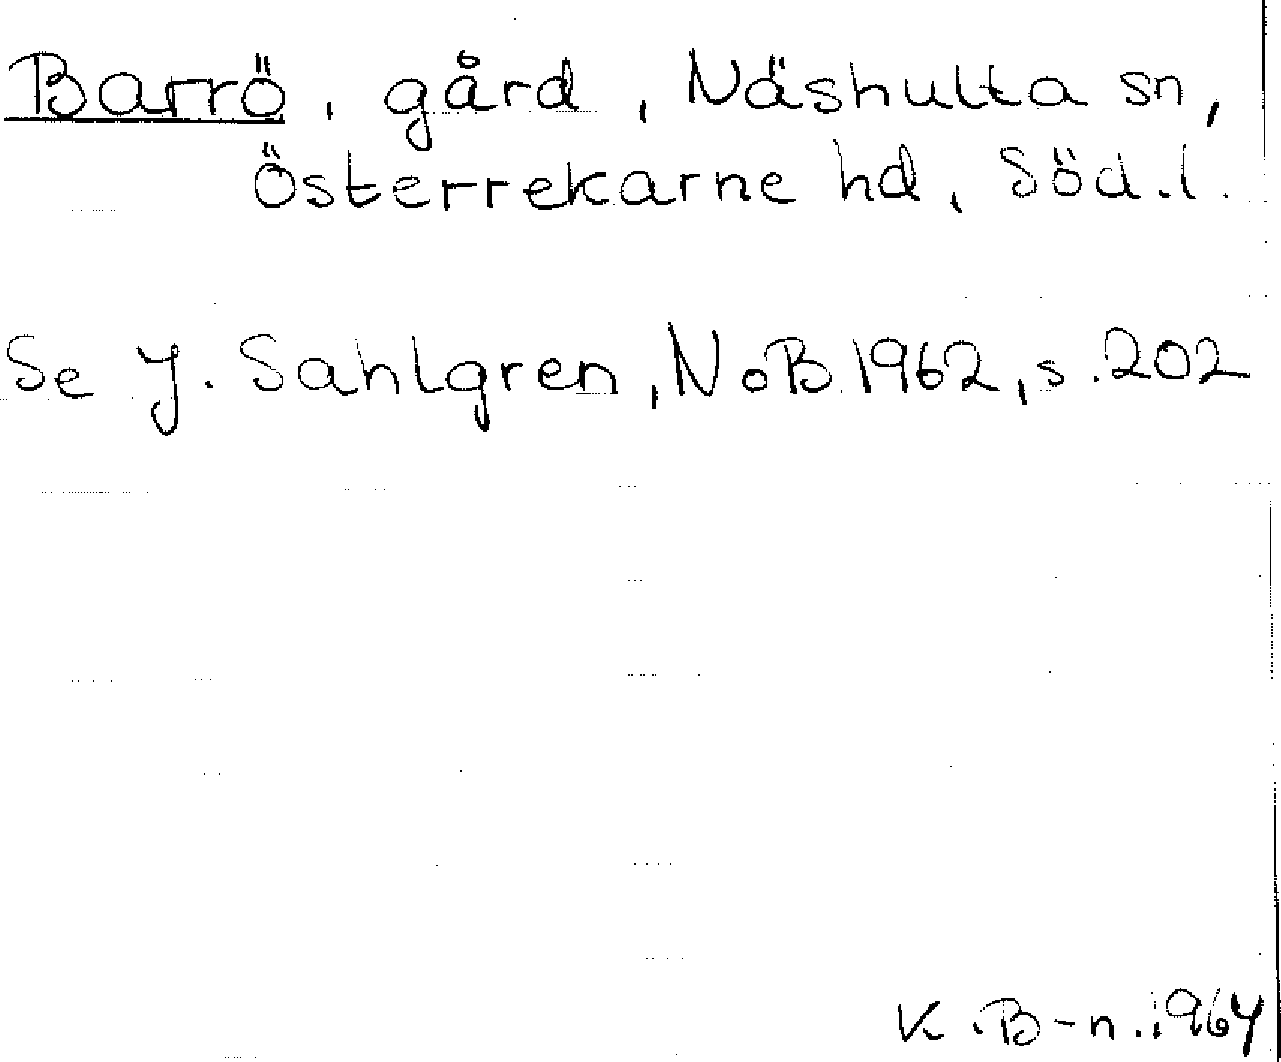 Barrö, gård, Näshulta sn,
Österrekarne hd, Söd.l.
Se J. Sahlgren, NoB 1962, s. 202
K.B-n. 1964